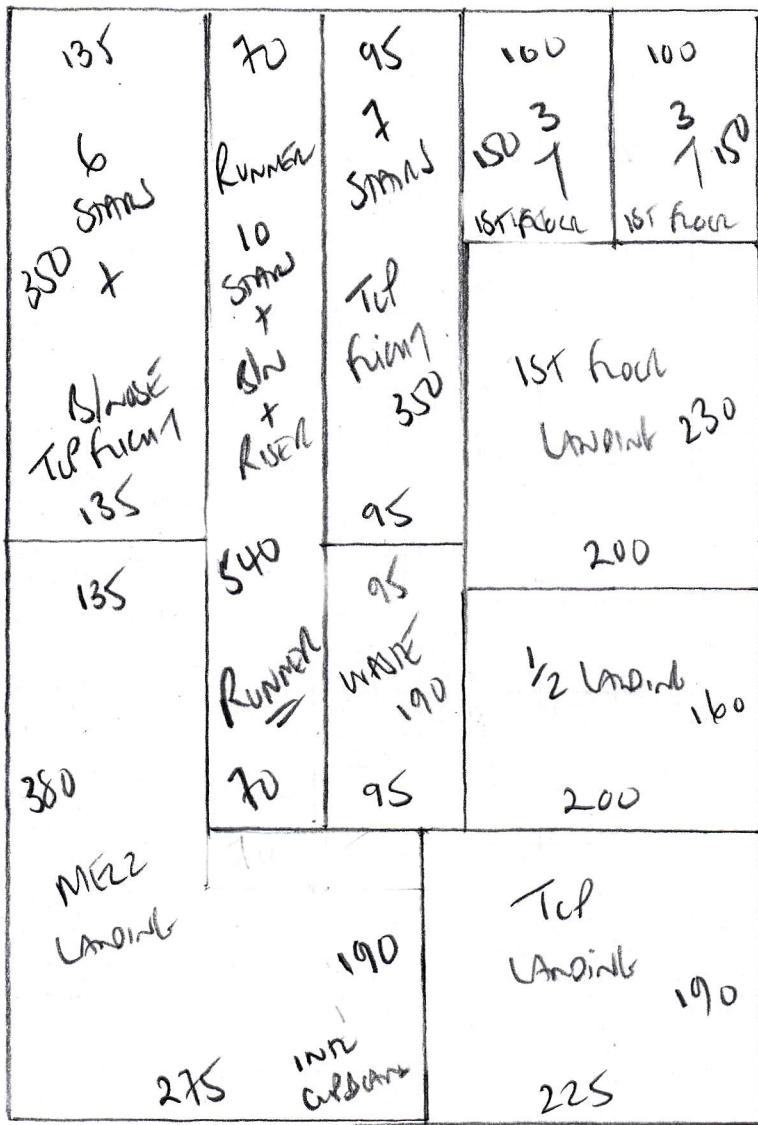 135
6
STAIRS
350 +
B/NOSE
TOP FLIGHT
135
70
RUNNER
10
STAIRS
+
B/N
+
RISER
540
RUNNER
70
95
7
STAIRS
TOP
FLIGHT
350
95
100
150 3
1ST FLOOR
100
3 150
1ST FLOOR
1ST FLOOR
LANDING 230
200
135
380
MEZZ
LANDING
190
INTO
CUPBOARD
275
95
WASTE
190
95
1/2 LANDING
160
200
TOP
LANDING
190
225